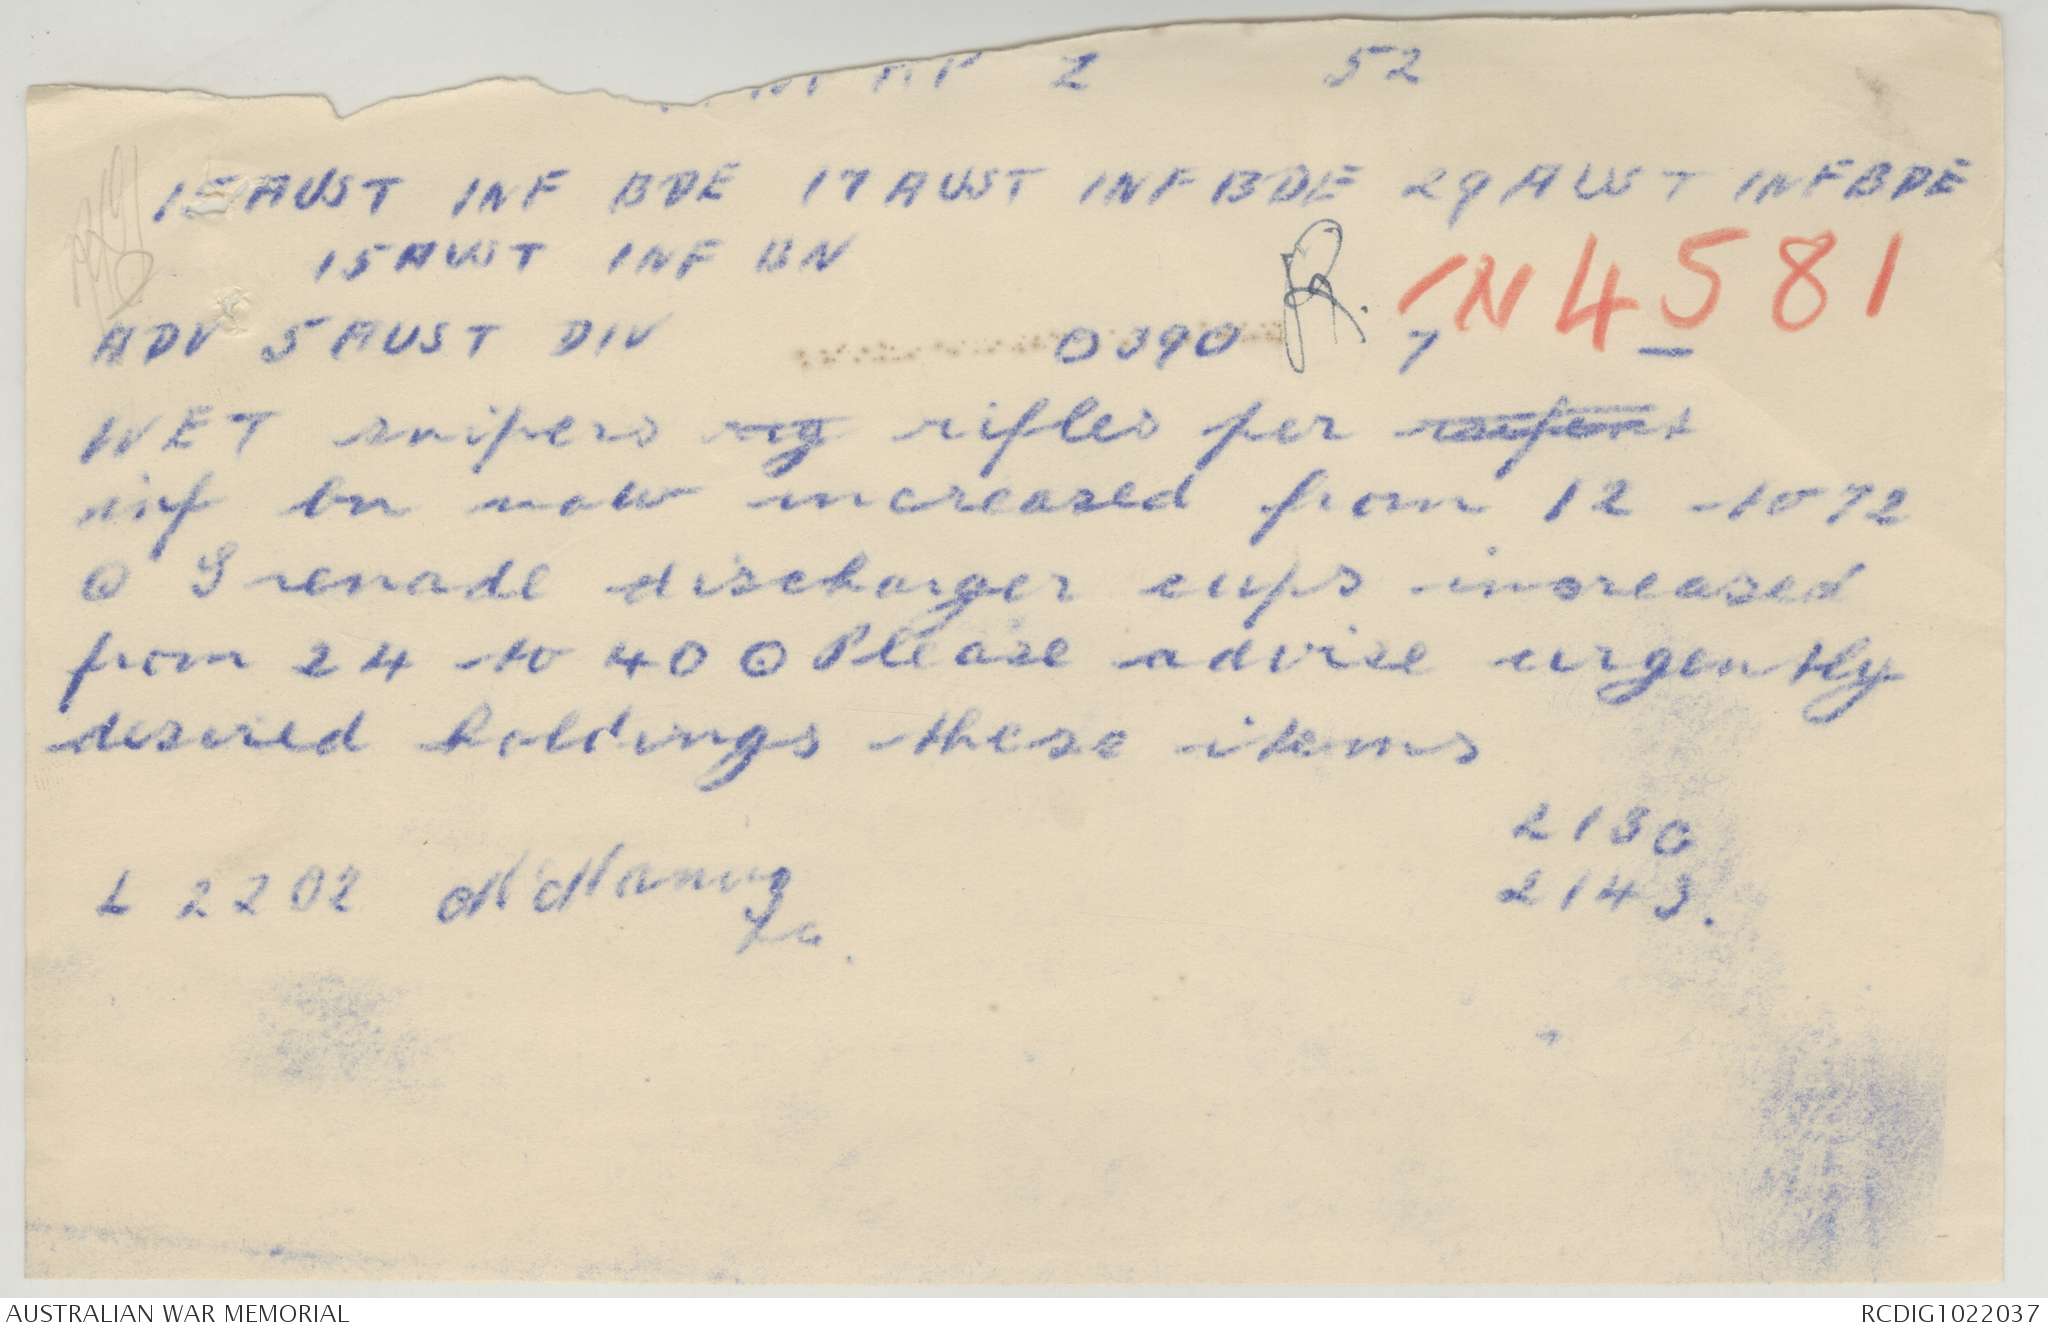 Z 52
15 AUST INF BDE 17 AUST INF BDE 29 AUST INF BDE
15 AUST INF BN
IN 4581
ADV 5 AUST DIV 0390 7 —
WET snipers rig rifles per
inf bn now increased from 12 to 72
⊙ Grenade discharger cups increased
from 24 to 40 ⊙ Please advise urgently
desired holdings these items
2130
L 2202 2143.
AUSTRALIAN WAR MEMORIAL RCDIG1022037